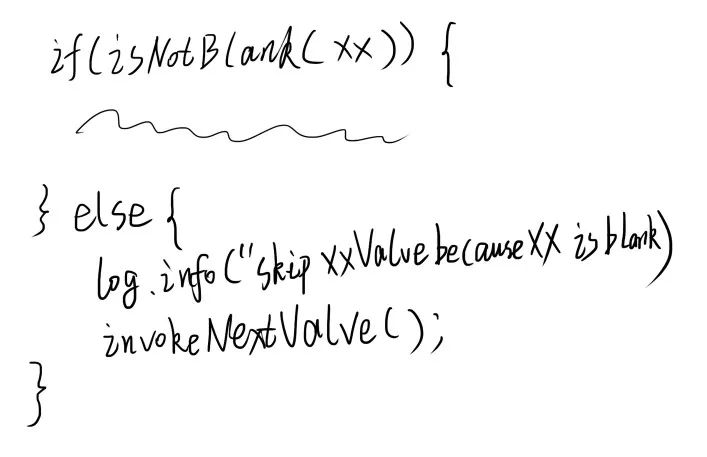 if(isNotBlank(xx)) {
} else {
log.info("skip xxValve because xx is blank)
invokeNextValve();
}